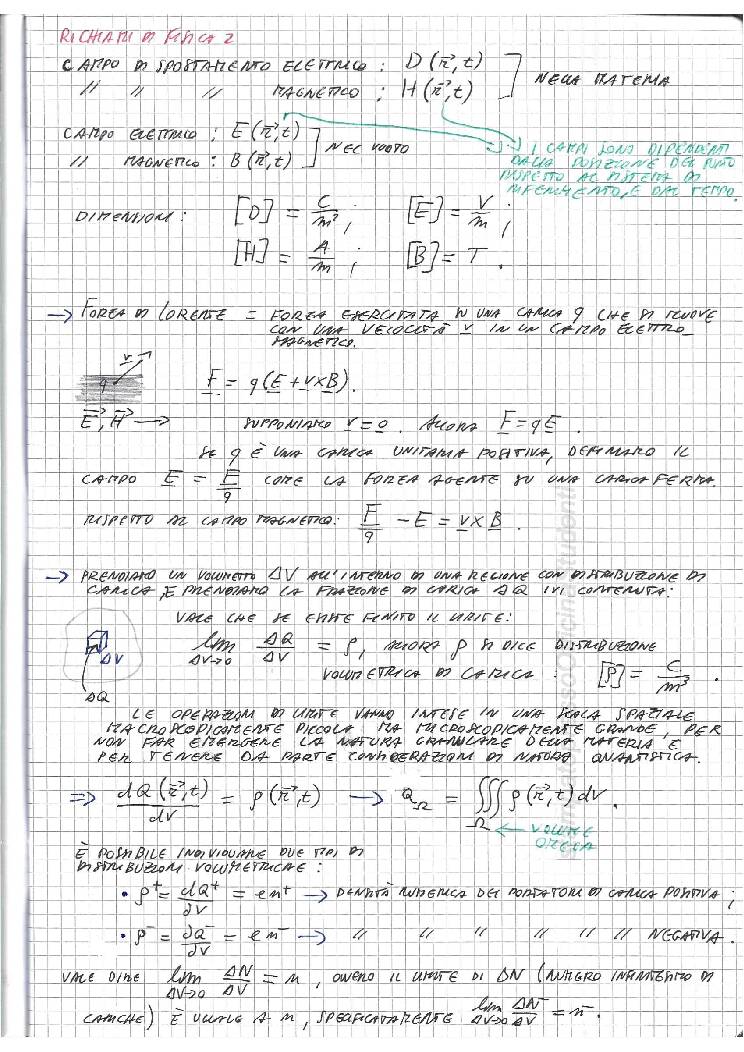 RICHIAMI DI FISICA 2
CAMPO DI SPOSTAMENTO ELETTRICO : D(r⃗,t)
// // // MAGNETICO : H(r⃗,t) ] NELLA MATERIA
CAMPO ELETTRICO : E(r⃗,t)
// MAGNETICO : B(r⃗,t) ] NEL VUOTO
I CAMPI SONO DIPENDENTI
DALLA POSIZIONE DEL PUNTO
RISPETTO AL SISTEMA DI
RIFERIMENTO, E DAL TEMPO.
DIMENSIONI : [D] = C/m² ; [E] = V/m ;
[H] = A/m ; [B] = T .
→ FORZA DI LORENTZ = FORZA ESERCITATA SU UNA CARICA q CHE SI MUOVE
CON UNA VELOCITÀ v IN UN CAMPO ELETTRO_
MAGNETICO.
v
q
F = q(E + v×B).
E⃗, H⃗ → SUPPONIAMO v = 0 . ALLORA F = qE .
SE q È UNA CARICA UNITARIA POSITIVA, DEFINIAMO IL
CAMPO E = F/q COME LA FORZA AGENTE SU UNA CARICA FERMA.
RISPETTO AL CAMPO MAGNETICO: F/q - E = v×B .
→ PRENDIAMO UN VOLUMETTO ΔV ALL'INTERNO DI UNA REGIONE CON DISTRIBUZIONE DI
CARICA, E PRENDIAMO LA FRAZIONE DI CARICA ΔQ IVI CONTENUTA:
VALE CHE SE ESISTE FINITO IL LIMITE:
ΔV
ΔQ
lim ΔV→0 ΔQ/ΔV = ρ, ALLORA ρ SI DICE DISTRIBUZIONE
VOLUMETRICA DI CARICA : [ρ] = C/m³ .
LE OPERAZIONI DI LIMITE VANNO INTESE IN UNA SCALA SPAZIALE
MACROSCOPICAMENTE PICCOLA MA MICROSCOPICAMENTE GRANDE, PER
NON FAR EMERGERE LA NATURA GRANULARE DELLA MATERIA E
PER TENERE DA PARTE CONSIDERAZIONI DI NATURA QUANTISTICA.
⇒ dQ(r⃗,t)/dV = ρ(r⃗,t) → Q_Ω = ∭_Ω ρ(r⃗,t) dV .
← VOLUME
OMEGA
È POSSIBILE INDIVIDUARE DUE TIPI DI
DISTRIBUZIONI VOLUMETRICHE :
• ρ⁺ = dQ⁺/∂V = en⁺ → DENSITÀ NUMERICA DEI PORTATORI DI CARICA POSITIVA ;
• ρ⁻ = ∂Q⁻/∂V = en⁻ → // // // // // // // NEGATIVA .
VALE DIRE lim ΔV→0 ΔN/ΔV = n , OVVERO IL LIMITE DI ΔN (NUMERO INFINITESIMO DI
CARICHE) È UGUALE A n, SPECIFICATAMENTE lim ΔV→0 ΔN⁻/ΔV = n⁻.